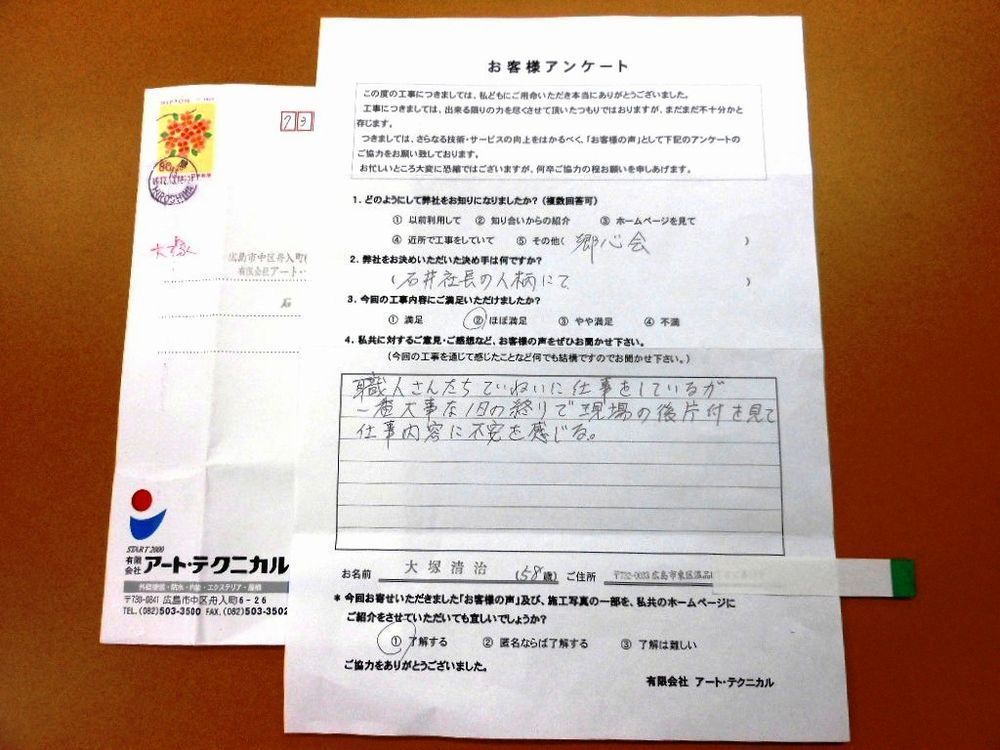 お客様アンケート
この度の工事につきましては、私どもにご用命いただき本当にありがとうございました。
工事につきましては、出来る限りの力を尽くさせて頂いたつもりではおりますが、まだまだ不十分かと
存じます。
つきましては、さらなる技術・サービスの向上をはかるべく、「お客様の声」として下記のアンケートの
ご協力をお願い致しております。
お忙しいところ大変に恐縮ではございますが、何卒ご協力の程お願いを申しあげます。
1. どのようにして弊社をお知りになりましたか? (複数回答可)
① 以前利用して ② 知り合いからの紹介 ③ ホームページを見て
④ 近所で工事をしていて ⑤ その他( 郷心会 )
2. 弊社をお決めいただいた決め手は何ですか?
( 石井社長の人柄にて )
3. 今回の工事内容にご満足いただけましたか?
① 満足 ② ほぼ満足 ③ やや満足 ④ 不満
4. 私共に対するご意見・ご感想など、お客様の声をぜひお聞かせ下さい。
(今回の工事を通じて感じたことなど何でも結構ですのでお聞かせ下さい。)
職人さんたちていねいに仕事をしているが
一番大事な1日の終りで現場の後片付を見て
仕事内容に不安を感じる。
お名前 大塚清治 (58歳) ご住所 〒732-0033 広島市東区温品
* 今回お寄せいただきました「お客様の声」及び、施工写真の一部を、私共のホームページに
ご紹介をさせていただいても宜しいでしょうか?
① 了解する ② 匿名ならば了解する ③ 了解は難しい
ご協力をありがとうございました。
有限会社 アート・テクニカル
NIPPON
80
HIROSHIMA
73
大塚
広島市中区舟入町
有限会社アート・
石
START 2000
有限会社 アート・テクニカル
外壁塗装・防水・内装・エクステリア・屋根
〒730-0841 広島市中区舟入町6-26
TEL.(082)503-3500 FAX.(082)503-3502